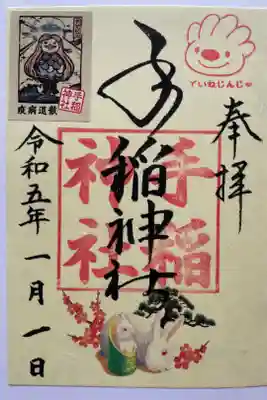 奉拝
ていねじんじゃ
手稲神社
手稲
神社
疾病退散
手稲
神社
令和五年 一月一日